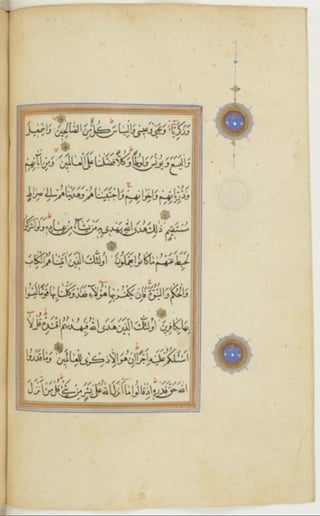 وَزَكَرِيَّا وَيَحْيَى وَعِيسَى وَإِلْيَاسَ كُلٌّ مِنَ الصَّالِحِينَ وَإِسْمَعِيلَ
وَالْيَسَعَ وَيُونُسَ وَلُوطًا وَكُلًّا فَضَّلْنَا عَلَى الْعَالَمِينَ وَمِنْ آبَائِهِمْ
وَذُرِّيَّاتِهِمْ وَإِخْوَانِهِمْ وَاجْتَبَيْنَاهُمْ وَهَدَيْنَاهُمْ إِلَى صِرَاطٍ
مُسْتَقِيمٍ ذَلِكَ هُدَى اللهِ يَهْدِي بِهِ مَنْ يَشَاءُ مِنْ عِبَادِهِ وَلَوْ أَشْرَكُوا
لَحَبِطَ عَنْهُمْ مَا كَانُوا يَعْمَلُونَ أُولَئِكَ الَّذِينَ آتَيْنَاهُمُ الْكِتَابَ
وَالْحُكْمَ وَالنُّبُوَّةَ فَإِنْ يَكْفُرْ بِهَا هَؤُلَاءِ فَقَدْ وَكَّلْنَا بِهَا قَوْمًا لَيْسُوا
بِهَا بِكَافِرِينَ أُولَئِكَ الَّذِينَ هَدَى اللهُ فَبِهُدَيهُمُ اقْتَدِهْ قُلْ لَا
أَسْئَلُكُمْ عَلَيْهِ أَجْرًا إِنْ هُوَ إِلَّا ذِكْرَى لِلْعَالَمِينَ وَمَا قَدَرُوا
اللهَ حَقَّ قَدْرِهِ إِذْ قَالُوا مَا أَنْزَلَ اللهُ عَلَى بَشَرٍ مِنْ شَيْءٍ قُلْ مَنْ أَنْزَلَ